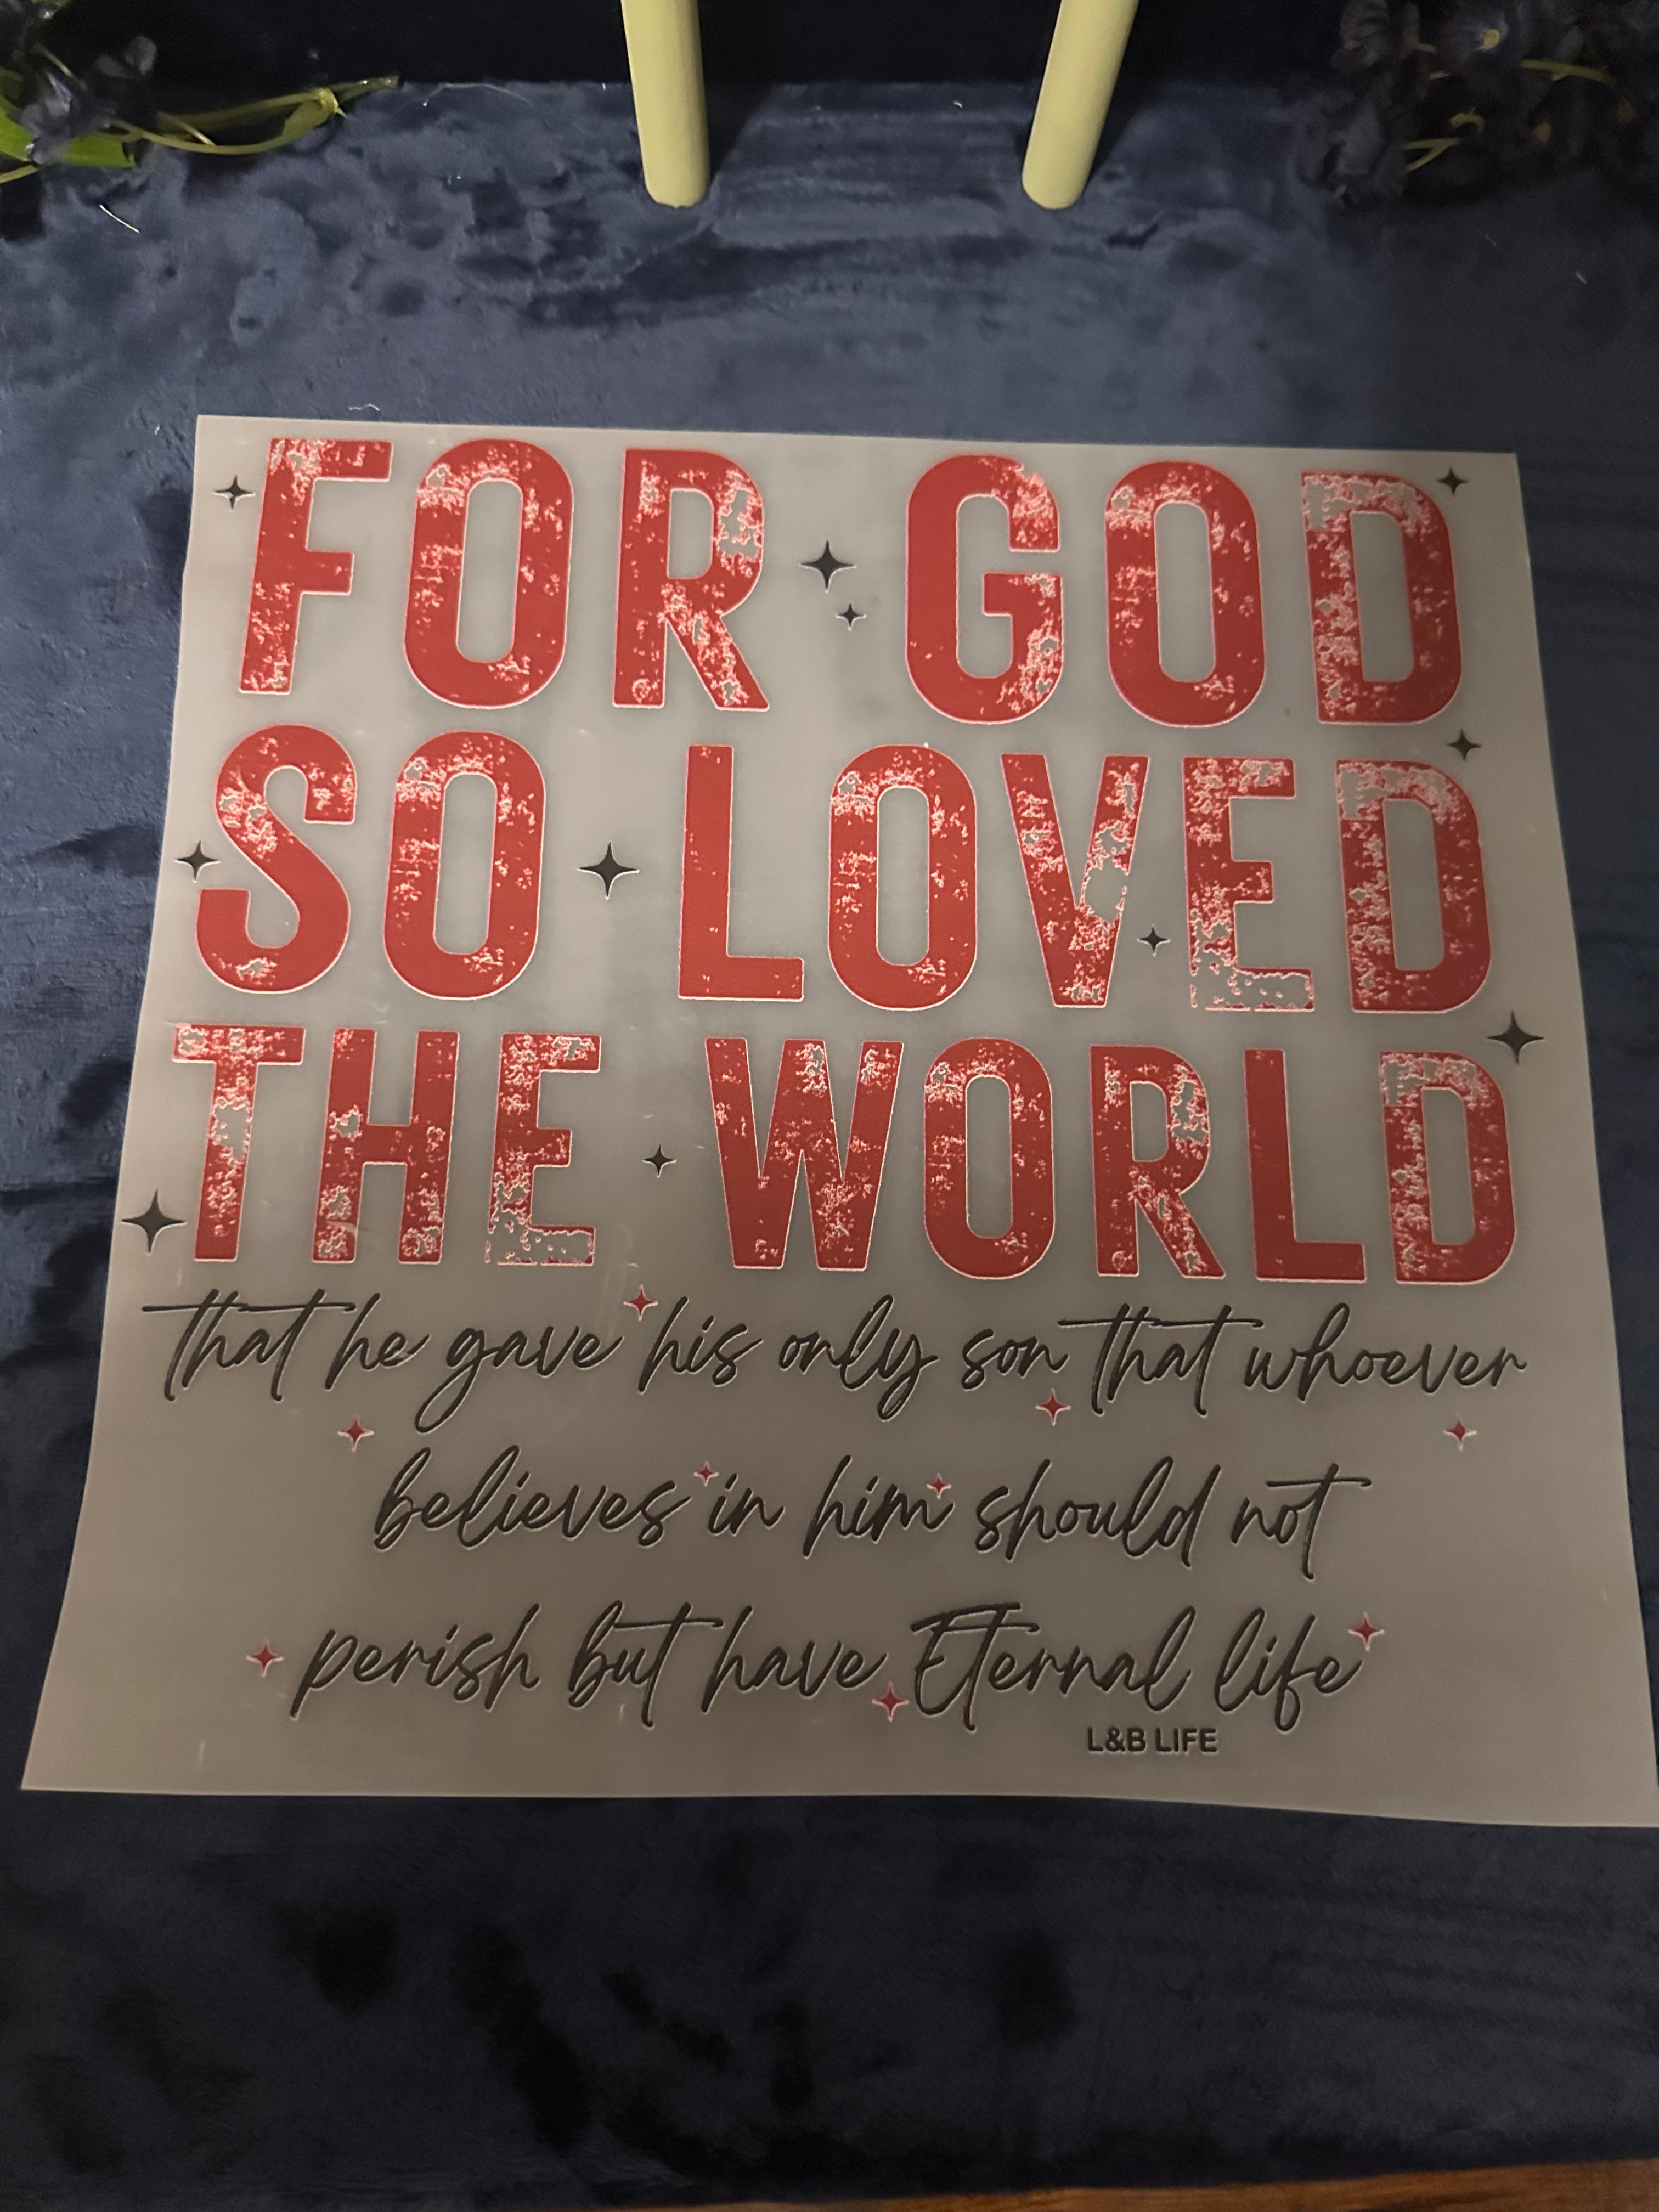 FOR GOD
SO LOVED
THE WORLD
that he gave his only son that whoever
believes in him should not
perish but have Eternal life
L&B LIFE